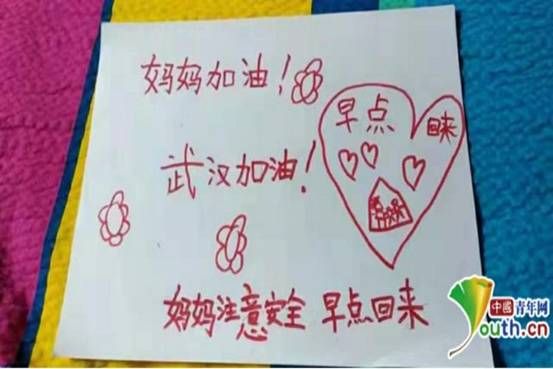 妈妈加油！
早点 回来
武汉加油！
妈妈注意安全 早点回来
中國青年网
youth.cn